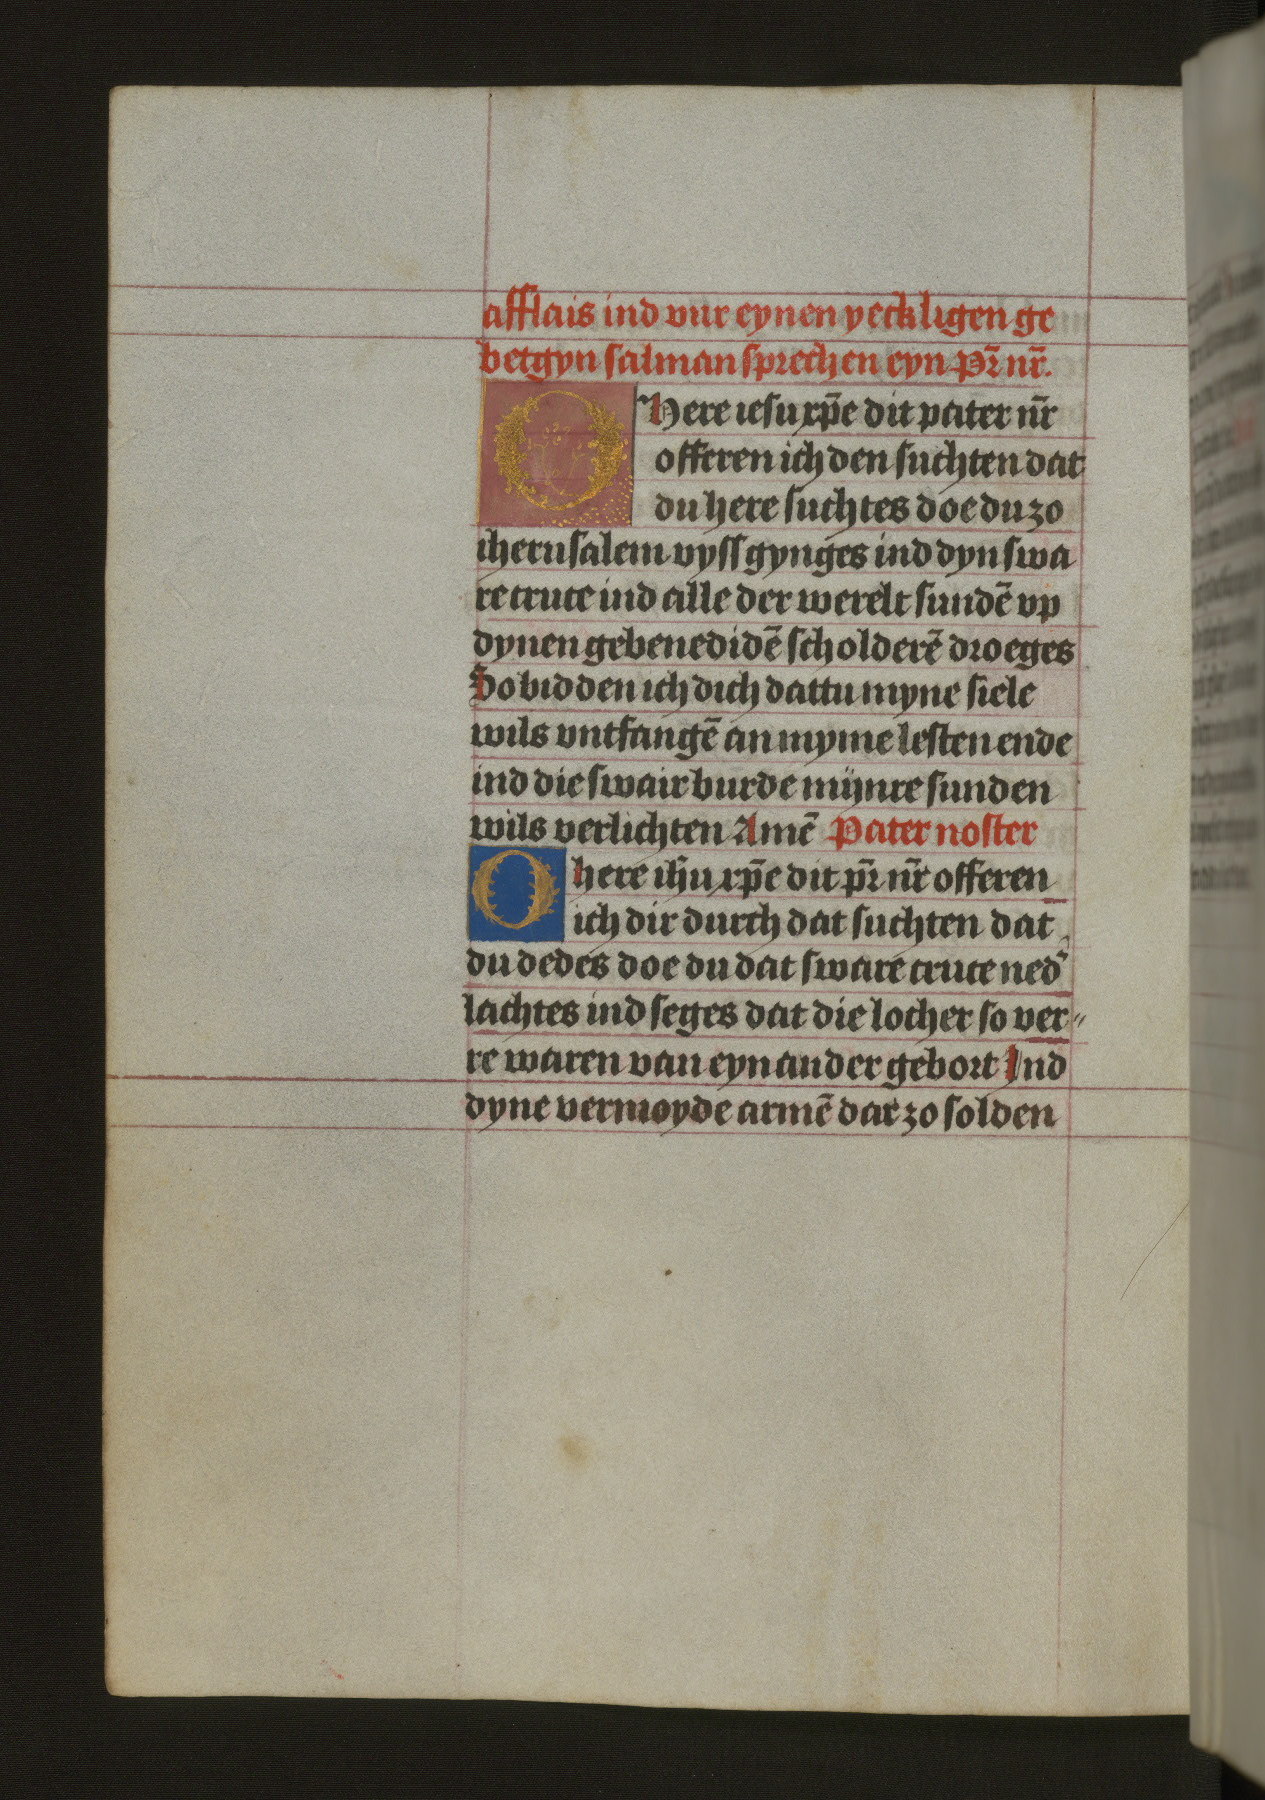 afflais ind vur eynen yeckligen ge
betgyn salman sprechen eyn pr̄ nr̄.
O here iesu xp̄e dit pater nr̄
offeren ich den suchten dat
du here suchtes doe du zo
iherusalem vyss gynges ind dyn swa
re cruce ind alle der werelt sundē vp
dynen gebenedidē scholderē droeges
So bidden ich dich dattu myne siele
wils vntfangē an myme lesten ende
ind die swair burde mijnre sunden
wils verlichten Amē Pater noster
O here ih̄u xp̄e dit pr̄ nr̄ offeren
ich dir durch dat suchten dat
du dedes doe du dat sware cruce ned'
lachtes ind seges dat die locher so ver〃
re waren van eyn ander gebort Ind
dyne vermoyde armē dar zo solden